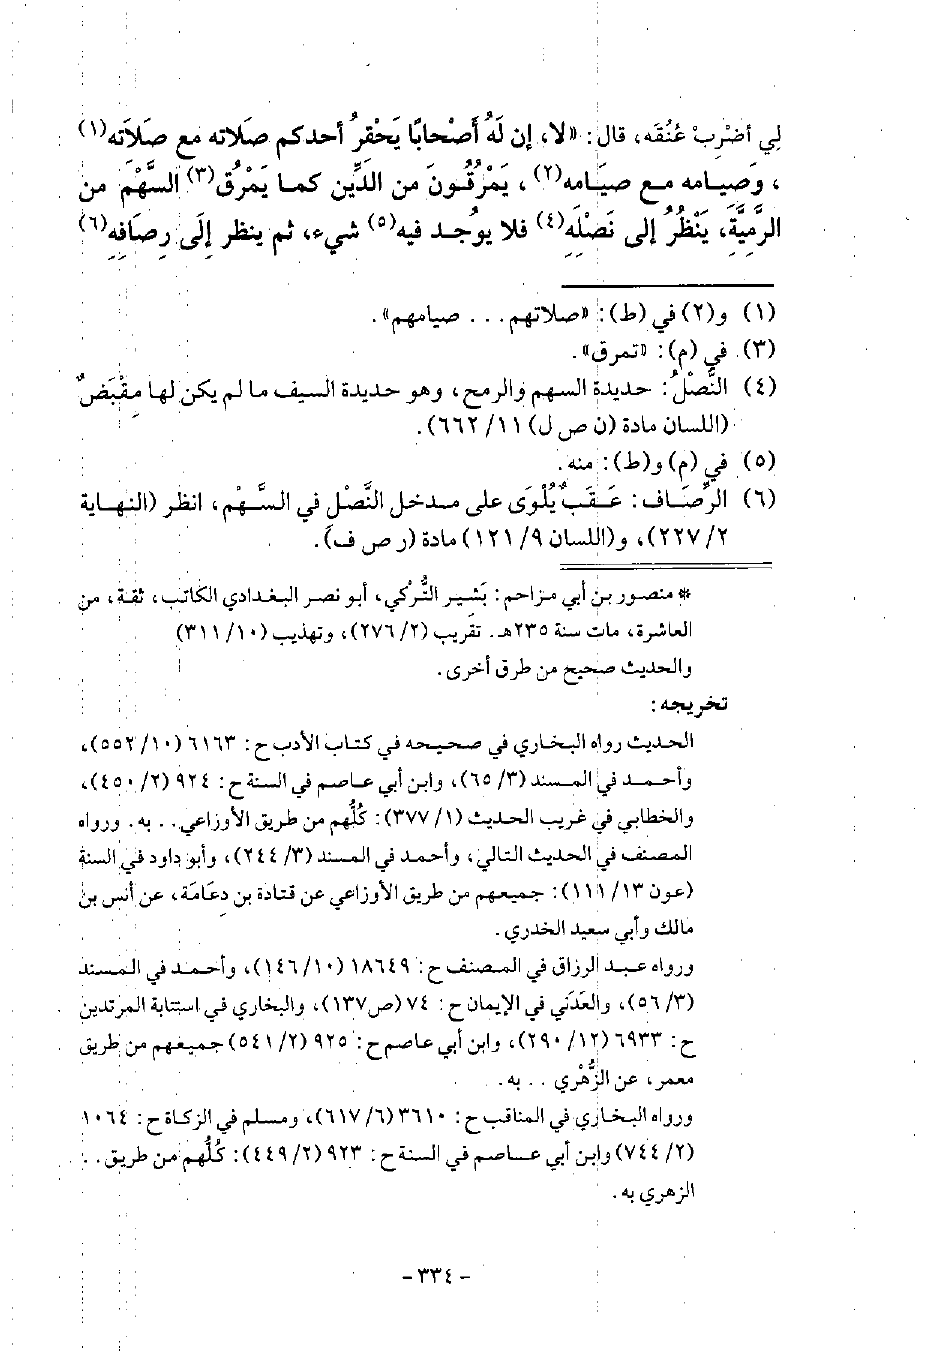 لِي أضْرِبْ عُنُقَه، قال: «لا، إن لَهُ أَصْحابًا يَحْقرُ أحدكم صلاته مع صَلاَته(١)
، وَصيامه مع صيَامه(٢)، يَمْرُقُونَ من الدِّين كما يَمْرُق(٣) السَّهْمَ من
الرَّمِيَّةِ، يَنْظُرُ إلى نَصْلِهِ(٤) فلا يوجُد فيه(٥) شيء، ثم ينظر إلَى رِصافِهِ(٦)
(١) و(٢) في (ط): «صلاتهم . . . صيامهم».
(٣) في (م): «تمرق».
(٤) النَّصْلُ: حديدة السهم والرمح، وهو حديدة السيف ما لم يكن لها مِقْبَضٌ
(اللسان مادة (ن ص ل) ١١/ ٦٦٢).
(٥) في (م) و(ط): منه.
(٦) الرِّصَاف: عَقَبٌ يُلْوَى على مدخل النَّصْل في السَّهْم، انظر (النهاية
٢/ ٢٢٧)، و(اللسان ٩/ ١٢١) مادة (ر ص ف).
* منصور بن أبي مزاحم: بَشير التُّرْكي، أبو نصر البغدادي الكاتب، ثقة، من
العاشرة، مات سنة ٢٣٥هـ. تقريب (٢/ ٢٧٦)، وتهذيب (١٠/ ٣١١)
والحديث صحيح من طرق أخرى.
تخريجه:
الحديث رواه البخاري في صحيحه في كتاب الأدب ح: ٦١٦٣ (١٠/ ٥٥٢)،
وأحمد في المسند (٣/ ٦٥)، وابن أبي عاصم في السنة ح: ٩٢٤ (٢/ ٤٥٠)،
والخطابي في غريب الحديث (١/ ٣٧٧): كُلُّهم من طريق الأوزاعي . . به. ورواه
المصنف في الحديث التالي، وأحمد في المسند (٣/ ٢٤٤)، وأبو داود في السنة
(عون ١٣/ ١١١): جميعهم من طريق الأوزاعي عن قتادة بن دِعَامَة، عن أنس بن
مالك وأبي سعيد الخدري.
ورواه عبد الرزاق في المصنف ح: ١٨٦٤٩ (١٠/ ١٤٦)، وأحمد في المسند
(٣/ ٥٦)، والعَدَني في الإيمان ح: ٧٤ (ص١٣٧)، والبخاري في استتابة المرتدين
ح: ٦٩٣٣ (١٢/ ٢٩٠)، وابن أبي عاصم ح: ٩٢٥ (٢/ ٥٤١) جميعهم من طريق
معمر، عن الزُّهْري . . به.
ورواه البخاري في المناقب ح: ٣٦١٠ (٦/ ٦١٧)، ومسلم في الزكاة ح: ١٠٦٤
(٢/ ٧٤٤) وابن أبي عاصم في السنة ح: ٩٢٣ (٢/ ٤٤٩): كُلُّهم من طريق . .
الزهري به.
- ٣٣٤ -